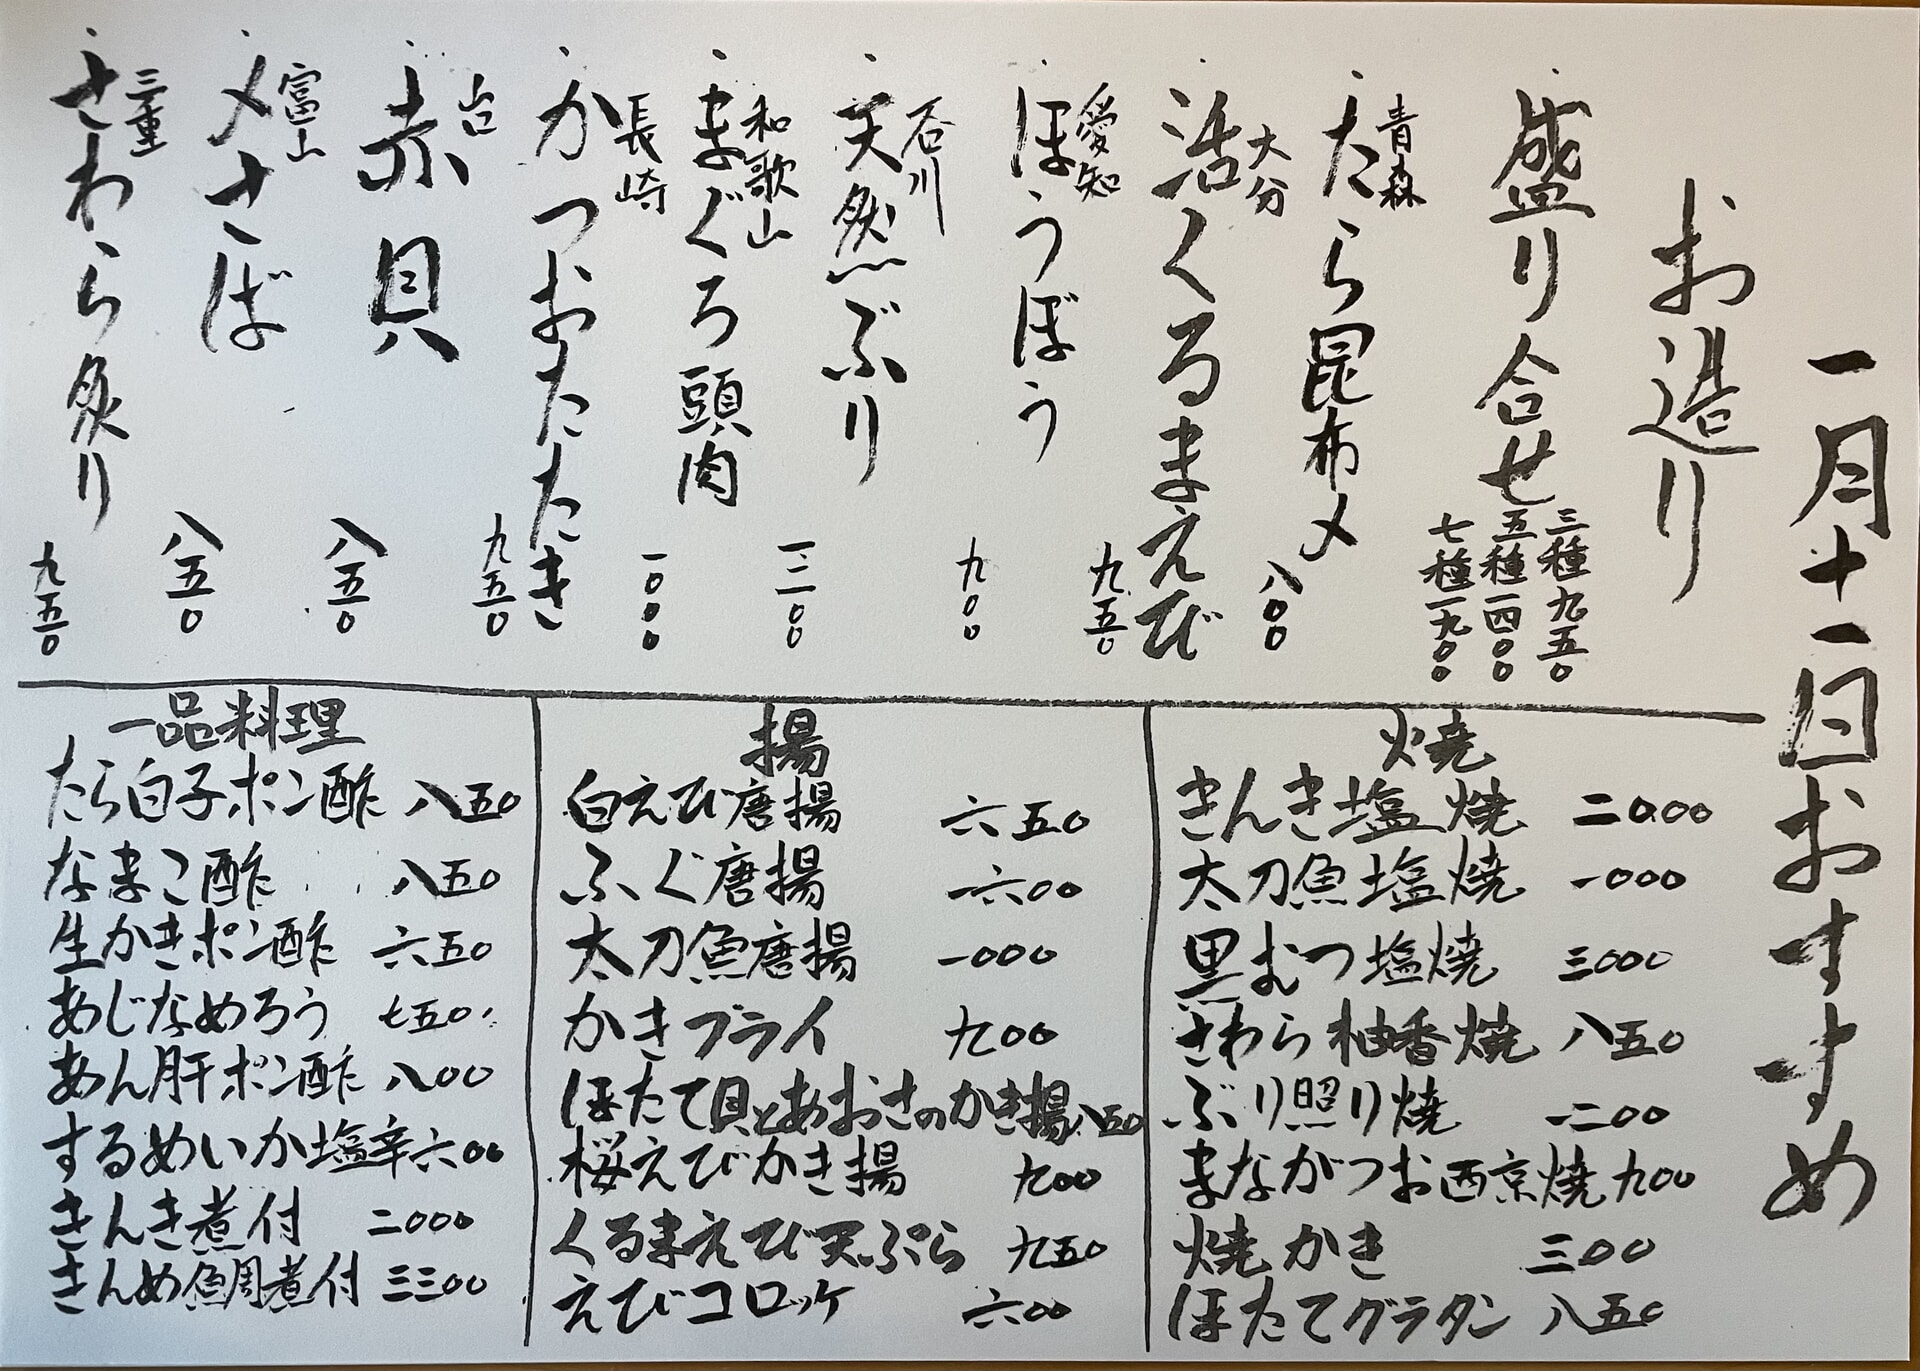 一月十一日おすすめ
お造り
盛り合せ 三種九五〇
五種一四〇〇
七種一九〇〇
青森
たら昆布〆 八〇〇
大分
活くるまえび 九五〇
愛知
ほうぼう 九〇〇
石川
天然ぶり 一二〇〇
和歌山
まぐろ頭肉 一〇〇〇
長崎
かつおたたき 九五〇
山口
赤貝 八五〇
富山
〆さば 八五〇
三重
さわら炙り 九五〇
焼
きんき塩焼 二〇〇〇
太刀魚塩焼 一〇〇〇
黒むつ塩焼 三〇〇〇
さわら柚香焼 八五〇
ぶり照り焼 一二〇〇
まながつお西京焼 九〇〇
焼かき 三〇〇
ほたてグラタン 八五〇
揚
白えび唐揚 六五〇
ふぐ唐揚 一六〇〇
太刀魚唐揚 一〇〇〇
かきフライ 九〇〇
ほたて貝とあおさのかき揚 八五〇
桜えびかき揚 九〇〇
くるまえび天ぷら 九五〇
えびコロッケ 六〇〇
一品料理
たら白子ポン酢 八五〇
なまこ酢 八五〇
生かきポン酢 六五〇
あじなめろう 七五〇
あん肝ポン酢 八〇〇
するめいか塩辛 六〇〇
きんき煮付 二〇〇〇
きんめ鯛煮付 三三〇〇